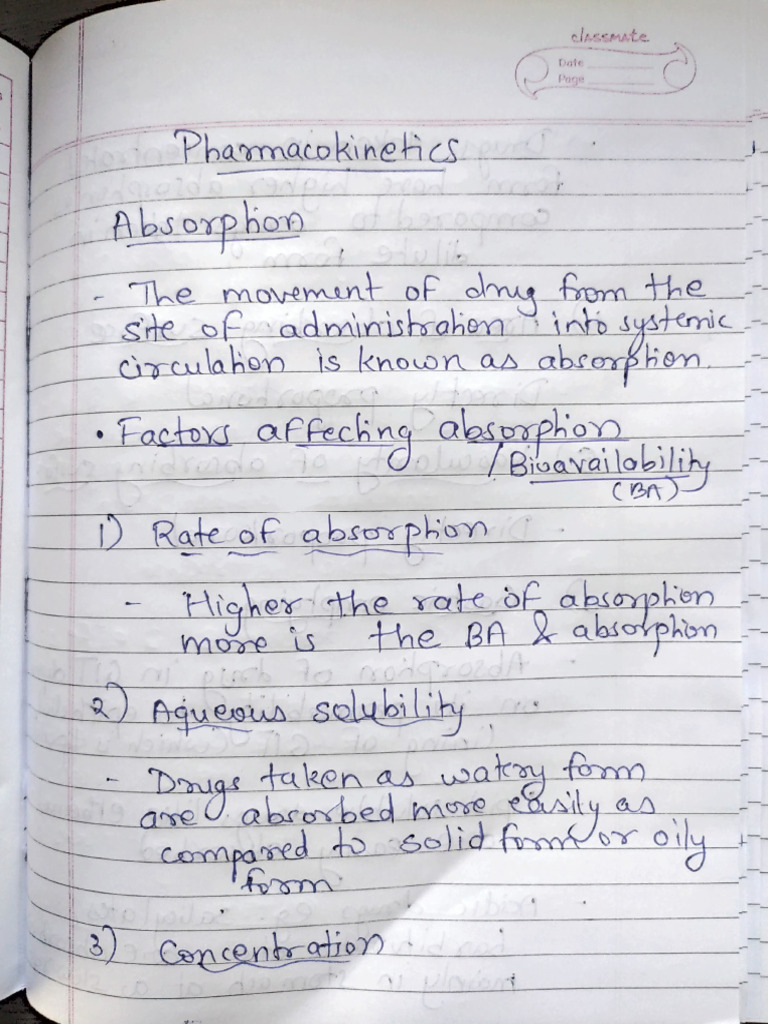 classmate
Date
Page
Pharmacokinetics
Absorption
- The movement of drug from the
site of administration into systemic
circulation is known as absorption.
• Factors affecting absorption
/ Bioavailability
(BA)
1) Rate of absorption
- Higher the rate of absorption
more is the BA & absorption
2) Aqueous solubility
- Drugs taken as watery form
are absorbed more easily as
compared to solid form or oily
form
3) Concentration